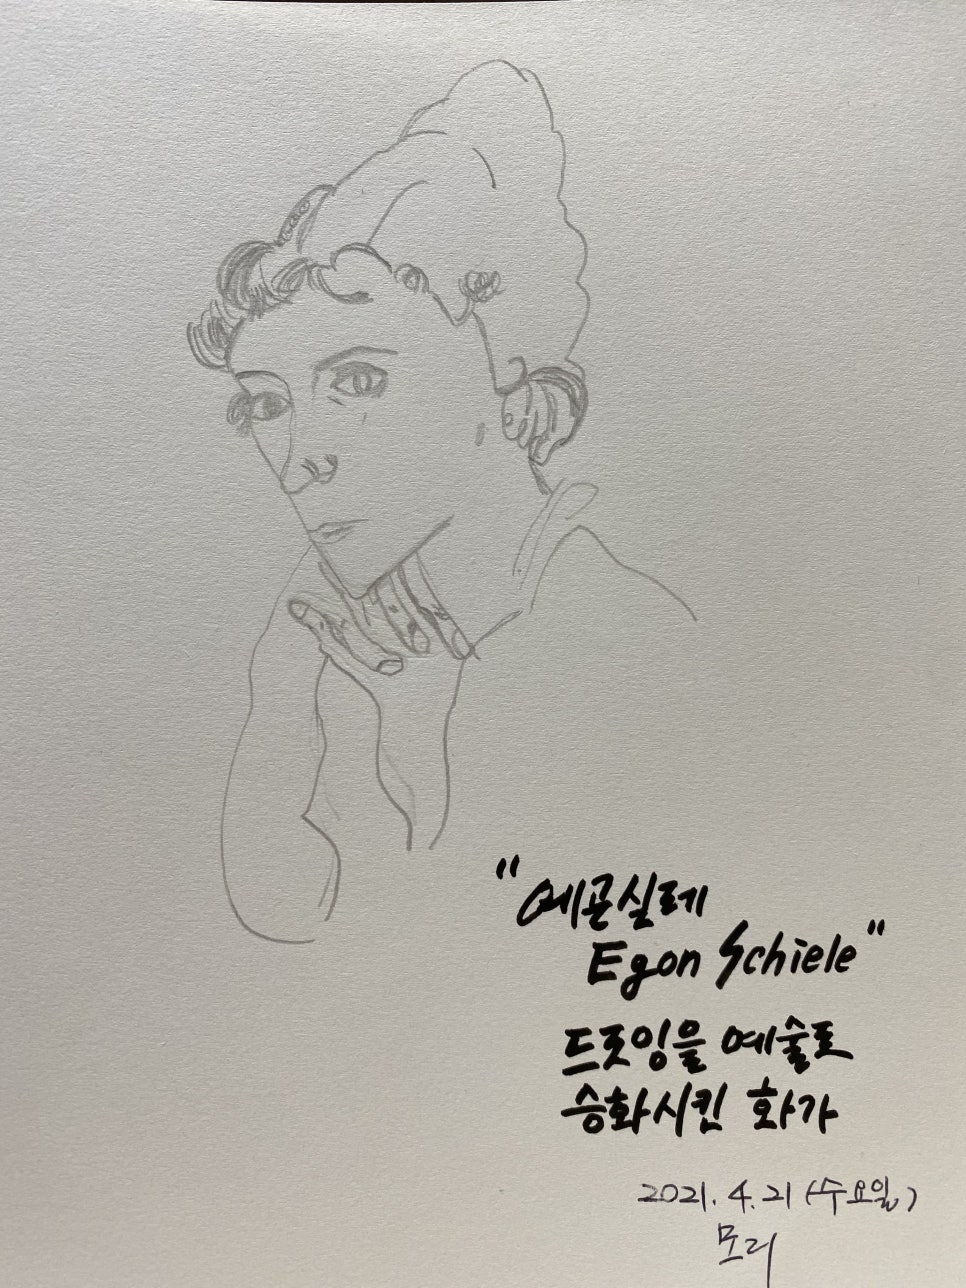 "에곤실레
Egon Schiele"
드로잉을 예술로
승화시킨 화가
2021.4.21(수요일)
모리